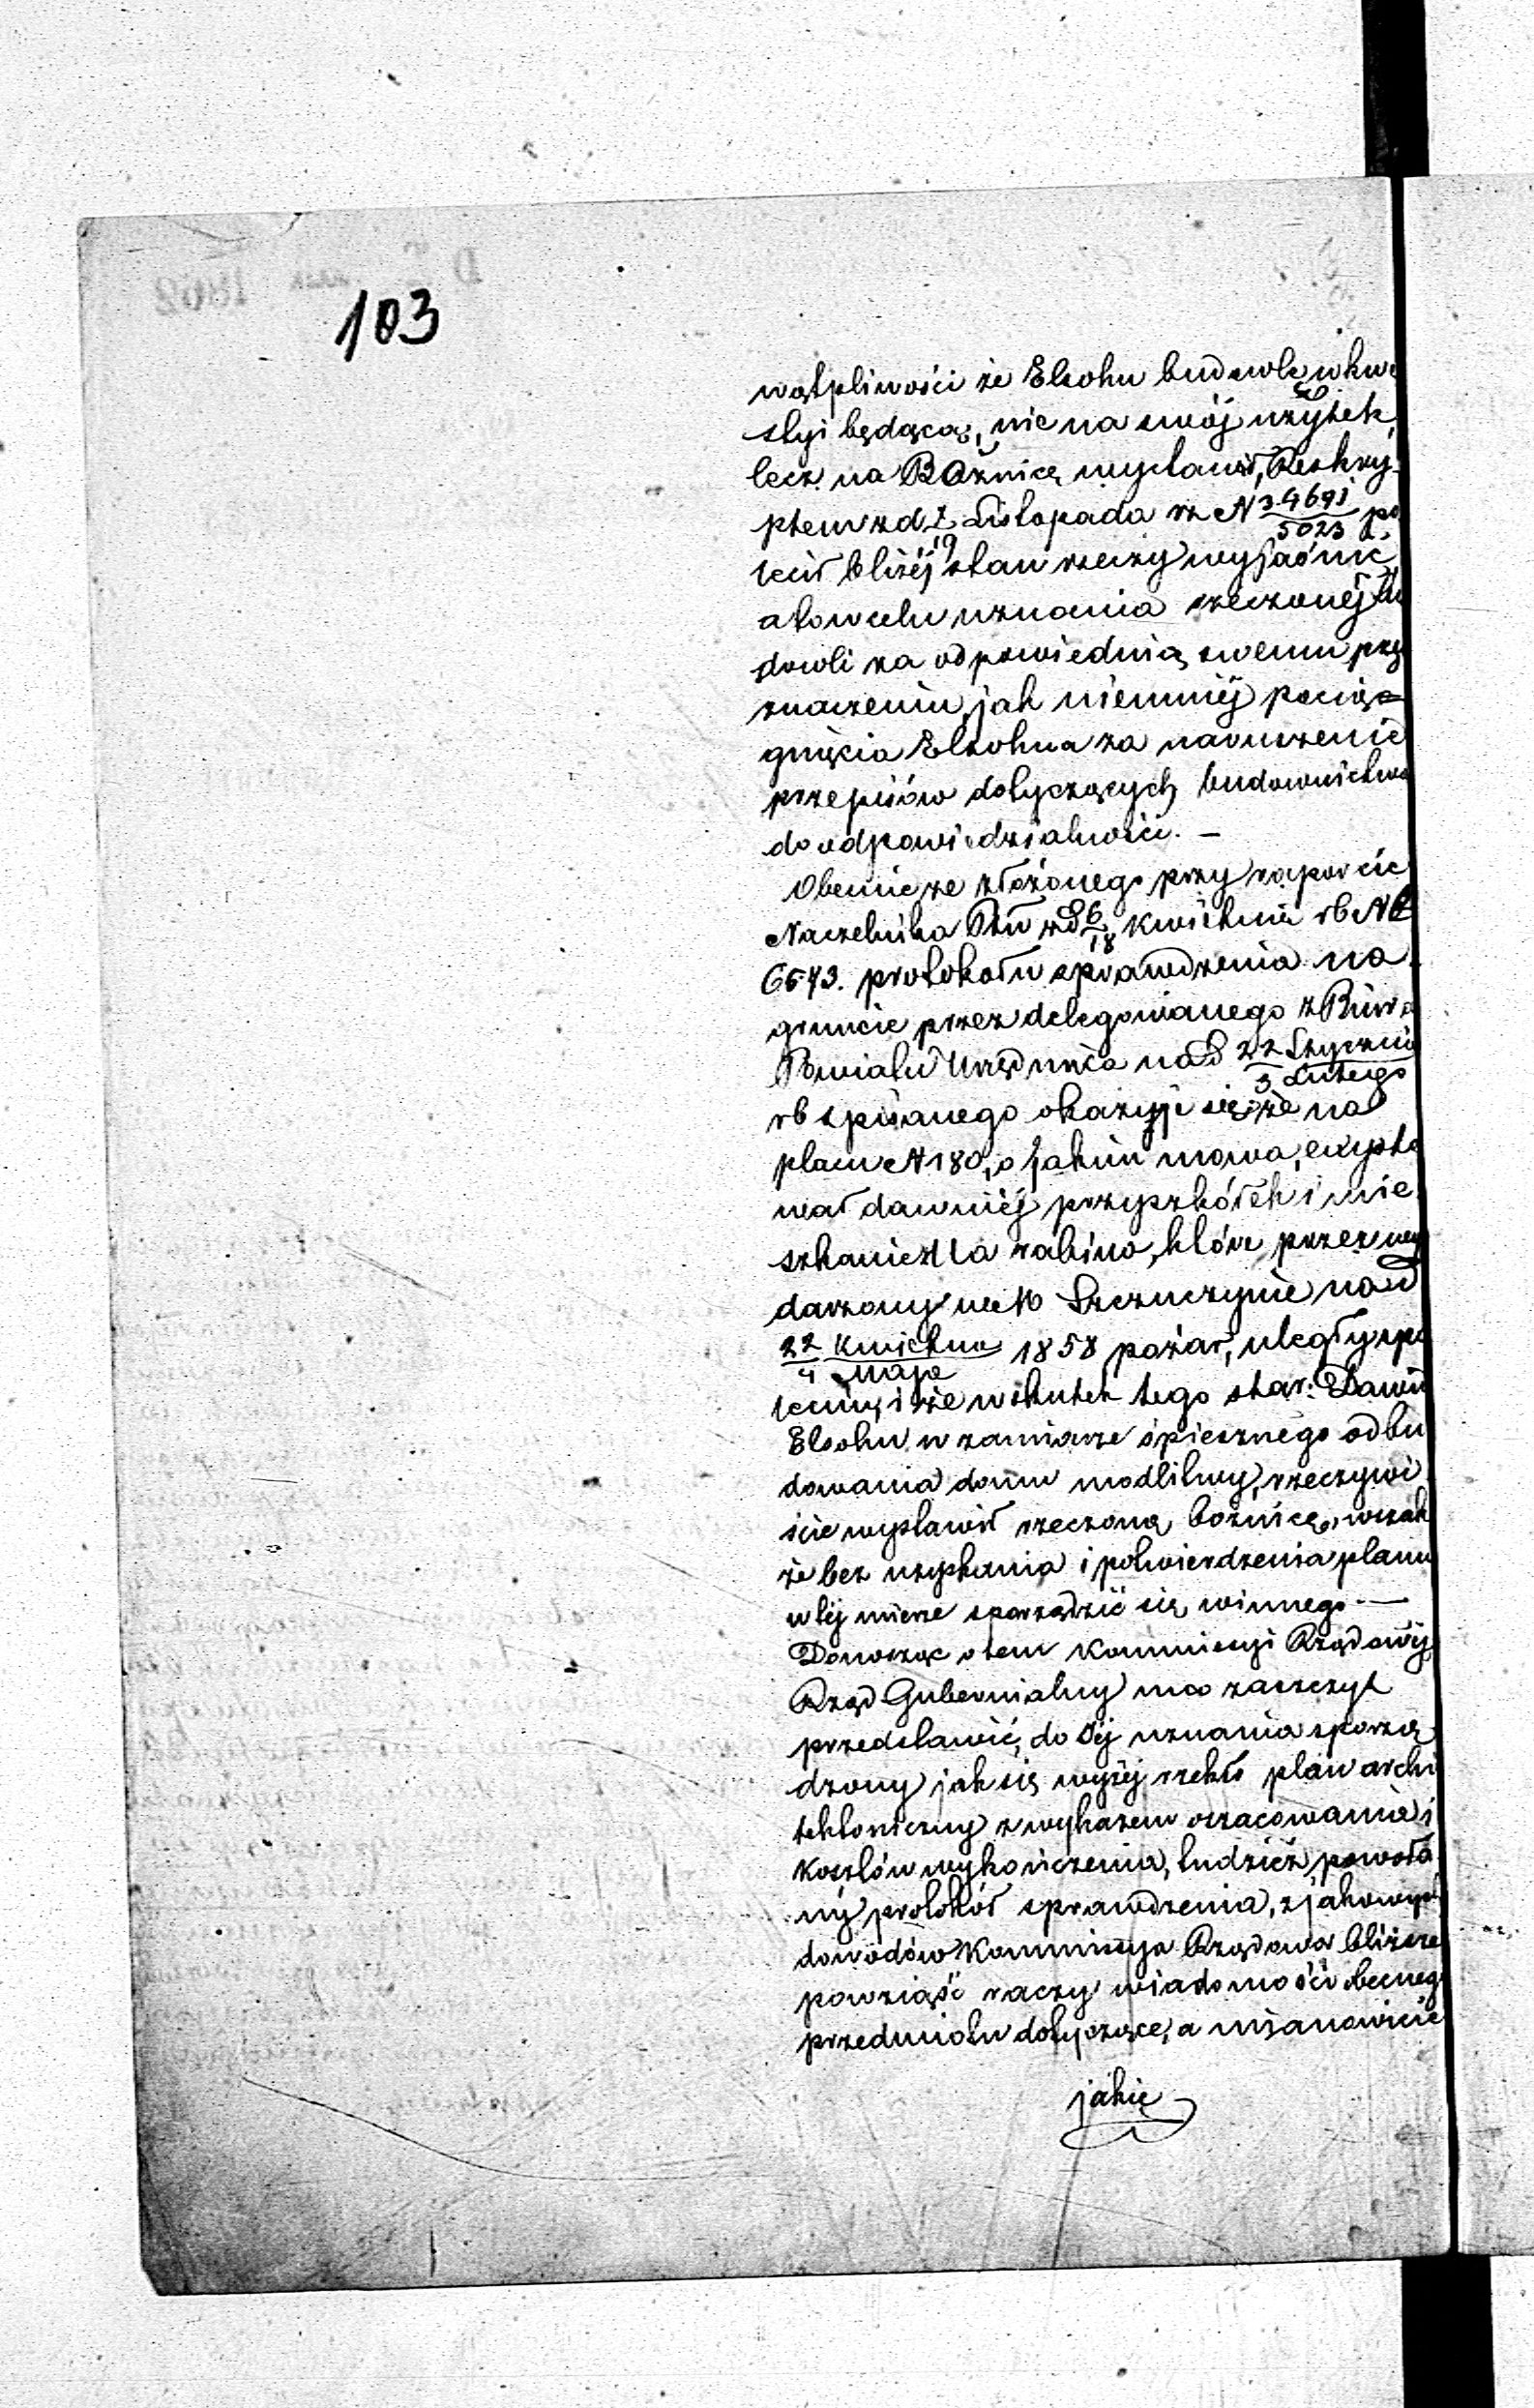 103
wątpliwości że Elsohn budowlę w kwe
styi będącą, nie na swój użytek,
lecz na Bożnicę wystawił, Reskry-
ptem z d 7/19 Listopada rz N 34691/5023 po
lecił bliżéj stan rzeczy wyjaśnić,
a to w celu uznania rzeczonéj bu
dowli za odpowiednią swemu prze
znaczeniu, jak niemniéj pocią-
gnięcia Elsohna za naruszenie
przepisów dotyczących budownictwa
do odpowiedzialności. –
Obecnie ze złożonego przy raporcie
Naczelnika Ptu z d 6/18 Kwietnia rb N
6643. protokołu sprawdzenia na
gruncie przez delegowanego z Biura
Powiatu Urzędnika na d 22 Stycznia/3 Lutego
rb spisanego okazuje się, że na
placu N 180, o jakim mowa, exysto
wał dawniéj przyszkółek i mie
szkanie dla rabina, które przez wy
darzony w m Szczuczynie na d
22 Kwietnia/4 Maja 1858 pożar, uległy spa
leniu, i że wskutek tego star: Dawid
Elsohn w zamiarze śpiesznego odbu
dowania domu modlitwy, rzeczywi
ście wystawił rzeczoną bożnicę, wszak
że bez uzyskania i potwierdzenia planu
w téj mierze sporządzić się winnego. —
Donosząc o tem Kommissyi Rządowéj
Rząd Gubernialny ma zaszczyt
przedstawić, do Jéj uznania sporzą
dzony jak się wyżéj rzekło plan archi
tektoniczny z wykazem oszacowania i
kosztów wykończenia, tudzież powoła
ny protokół sprawdzenia, z jakowych
dowodów Kommissya Rządowa bliższe
powziąść raczy wiadomości obecnego
przedmiotu dotyczące, a mianowicie
jakie